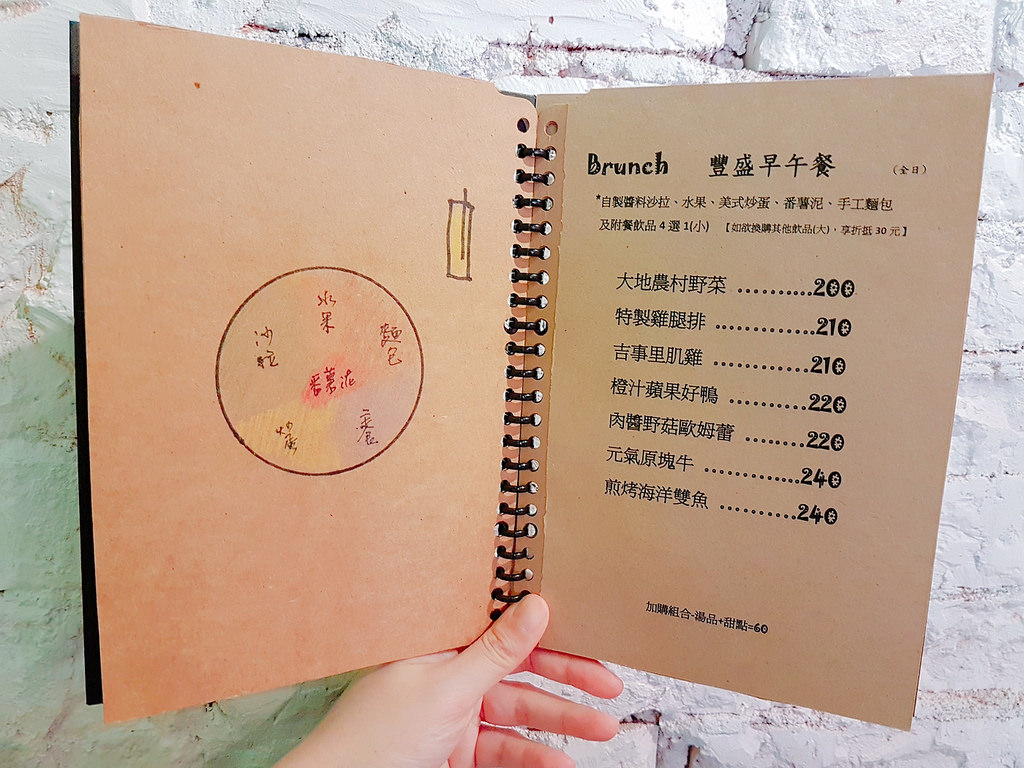 水果
麵包
沙拉
番薯泥
炒蛋
主餐
Brunch 豐盛早午餐 (全日)
*自製醬料沙拉、水果、美式炒蛋、番薯泥、手工麵包
及附餐飲品4選1(小) 【如欲換購其他飲品(大)，享折抵30元】
大地農村野菜 ..........200
特製雞腿排 ..............210
吉事里肌雞 .............210
橙汁蘋果好鴨 ...........220
肉醬野菇歐姆蕾 .........220
元氣原塊牛 .............240
煎烤海洋雙魚 ...........240
加購組合-湯品+甜點=60